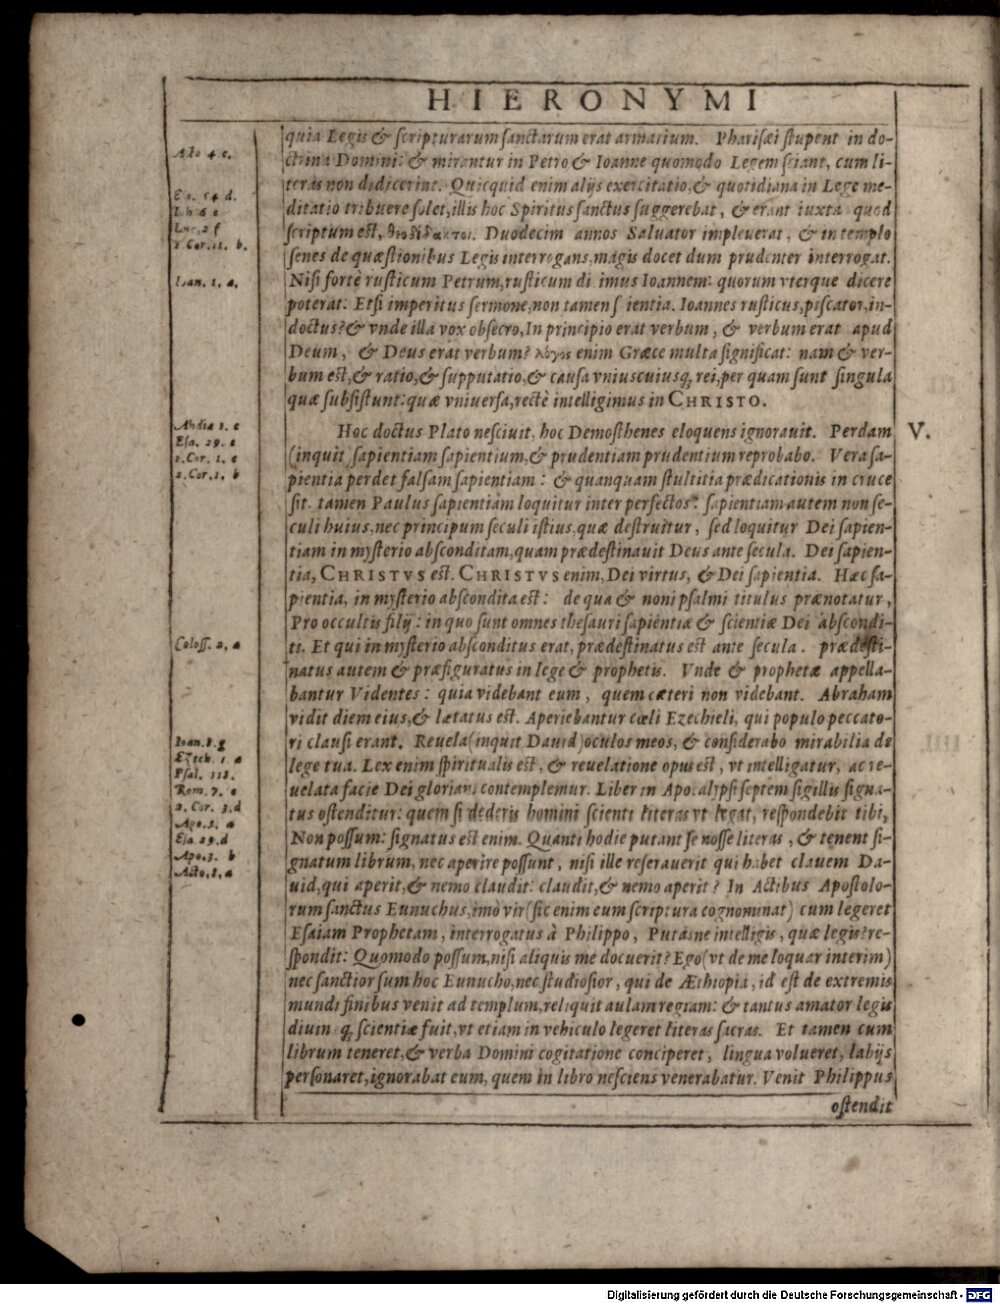 HIERONYMI
quia Legis & scripturarum sanctarum erat armarium. Pharisæi stupent in do-
ctrina Domini: & mirantur in Petro & Ioanne quomodo Legem sciant, cum li-
teras non didicerint. Quicquid enim alijs exercitatio, & quotidiana in Lege me-
ditatio tribuere solet, illis hoc Spiritus sanctus suggerebat, & erant iuxta quod
scriptum est, θεοδίδακτοι. Duodecim annos Saluator impleuerat, & in templo
senes de quæstionibus Legis interrogans, magis docet dum prudenter interrogat.
Nisi fortè rusticum Petrum, rusticum dicimus Ioannem: quorum vterque dicere
poterat: Etsi imperitus sermone, non tamen scientia. Ioannes rusticus, piscator, in-
doctus? & vnde illa vox obsecro, In principio erat verbum, & verbum erat apud
Deum, & Deus erat verbum? λόγος enim Græce multa significat: nam & ver-
bum est, & ratio, & supputatio, & causa vniuscuiusq; rei, per quam sunt singula
quæ subsistunt: quæ vniuersa, rectè intelligimus in CHRISTO.
Hoc doctus Plato nesciuit, hoc Demosthenes eloquens ignorauit. Perdam
(inquit) sapientiam sapientium, & prudentiam prudentium reprobabo. Vera sa-
pientia perdet falsam sapientiam: & quanquam stultitia prædicationis in cruce
sit. tamen Paulus sapientiam loquitur inter perfectos: sapientiam autem non se-
culi huius, nec principum seculi istius, quæ destruitur, sed loquitur Dei sapien-
tiam in mysterio absconditam, quam prædestinauit Deus ante secula. Dei sapien-
tia, CHRISTVS est. CHRISTVS enim, Dei virtus, & Dei sapientia. Hæc sa-
pientia, in mysterio abscondita est: de qua & noni psalmi titulus prænotatur,
Pro occultis filij: in quo sunt omnes thesauri sapientiæ & scientiæ Dei abscondi-
ti. Et qui in mysterio absconditus erat, prædestinatus est ante secula. prædesti-
natus autem & præfiguratus in lege & prophetis. Vnde & prophetæ appella-
bantur Videntes: quia videbant eum, quem cæteri non videbant. Abraham
vidit diem eius, & lætatus est. Aperiebantur cœli Ezechieli, qui populo peccato-
ri clausi erant. Reuela (inquit Dauid) oculos meos, & considerabo mirabilia de
lege tua. Lex enim spiritualis est, & reuelatione opus est, vt intelligatur, ac re-
uelata facie Dei gloriam contemplemur. Liber in Apocalypsi septem sigillis signa-
tus ostenditur: quem si dederis homini scienti literas vt legat, respondebit tibi,
Non possum: signatus est enim. Quanti hodie putant se nosse literas, & tenent si-
gnatum librum, nec aperire possunt, nisi ille reserauerit qui habet clauem Da-
uid, qui aperit, & nemo claudit: claudit, & nemo aperit? In Actibus Apostolo-
rum sanctus Eunuchus, imò vir (sic enim eum scriptura cognominat) cum legeret
Esaiam Prophetam, interrogatus à Philippo, Putasne intelligis, quæ legis? re-
spondit: Quomodo possum, nisi aliquis me docuerit? Ego (vt de me loquar interim)
nec sanctior sum hoc Eunucho, nec studiosior, qui de Æthiopia, id est de extremis
mundi finibus venit ad templum, reliquit aulam regiam: & tantus amator legis
diuinæq; scientiæ fuit, vt etiam in vehiculo legeret literas sacras. Et tamen cum
librum teneret, & verba Domini cogitatione conciperet, lingua volueret, labijs
personaret, ignorabat eum, quem in libro nesciens venerabatur. Venit Philippus
ostendit
V.
Esa. 54 d.
Luc. 2 f
2 Cor. 11. b.
Ioan. 1. a.
Abdiæ 1. c
Esa. 29. c
1. Cor. 1. c
1. Cor. 1. b
Coloss. 2. a
Ioan. 8. g
Ezech. 1. a
Psal. 118.
Rom. 7. c
2. Cor. 3. d
Apo. 5. a
Esa. 29. d
Apo. 3. b
Acto. 8. a
Digitalisierung gefördert durch die Deutsche Forschungsgemeinschaft - DFG